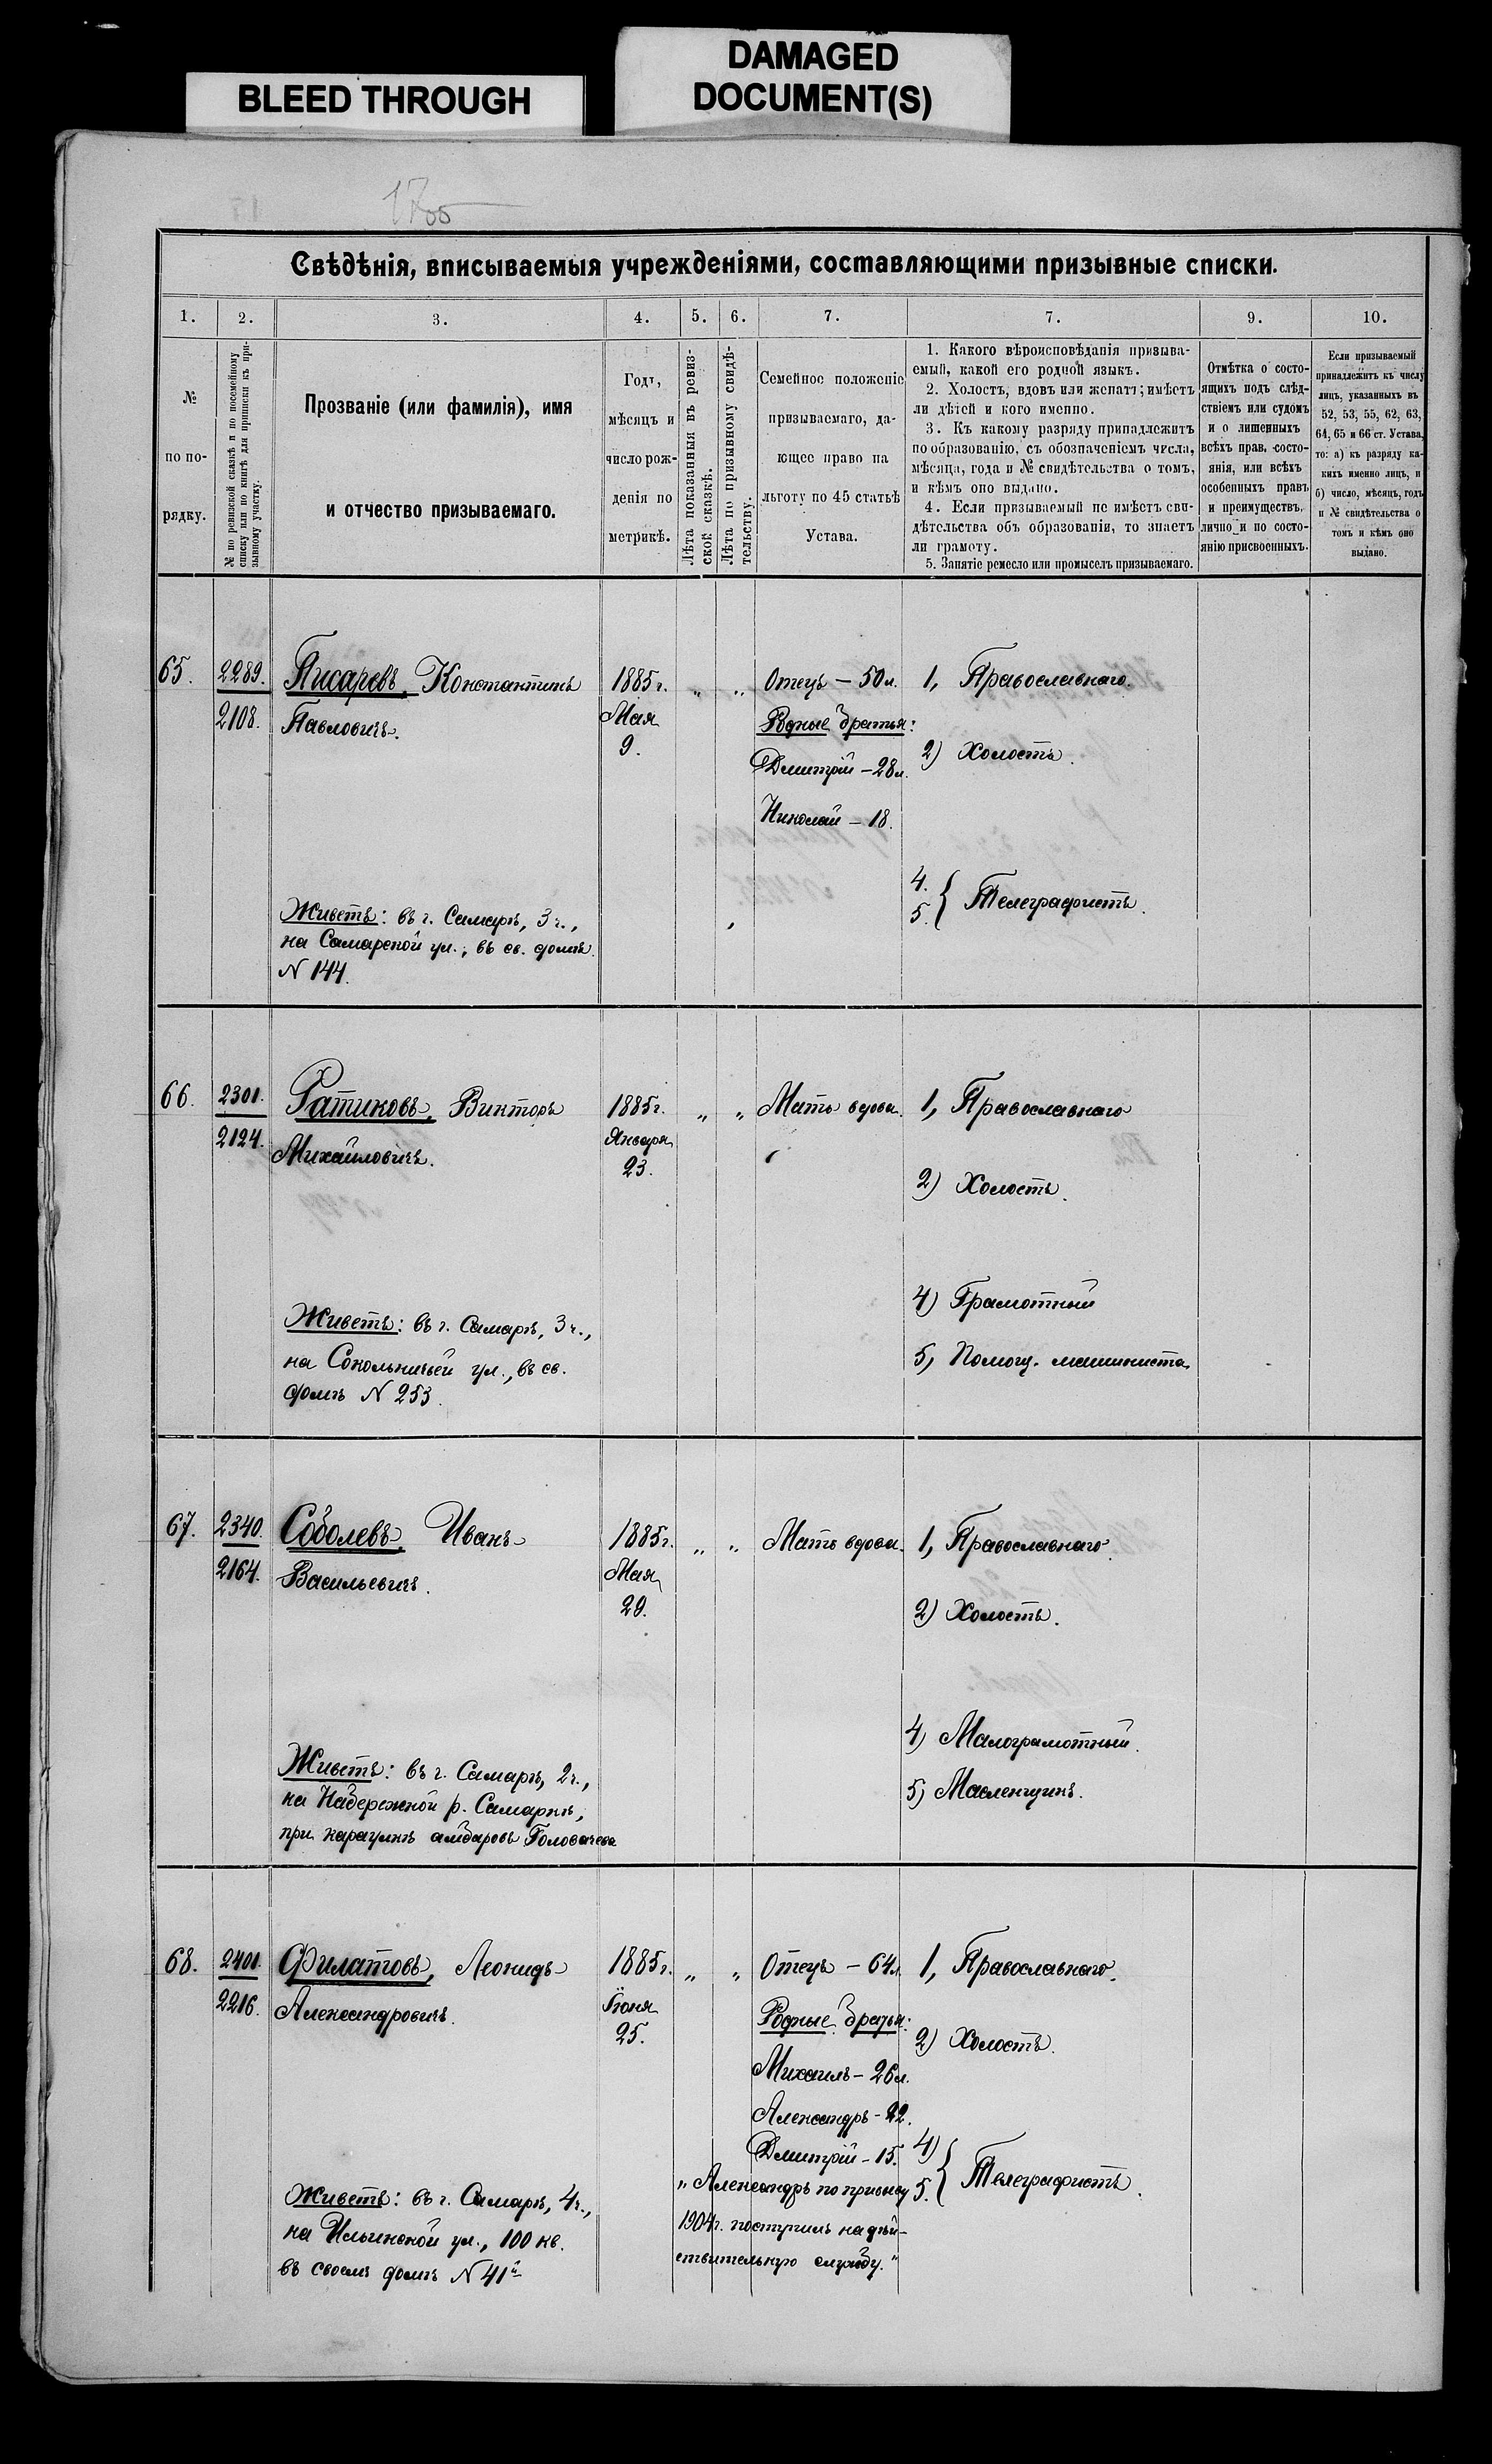 BLEED THROUGH
DAMAGED
DOCUMENT(S)
Свѣдѣнія, вписываемыя учрежденіями, составляющими призывные списки.
1. 2. 3. 4. 5. 6. 7. 7. 9. 10.
№
по по-
рядку.
№ по ревизской сказкѣ и по посемейному
списку или по книгѣ для приписки къ при-
зывному участку.
Прозваніе (или фамилія), имя
и отчество призываемаго.
Годъ,
мѣсяцъ и
число рож-
денія по
метрикѣ.
Лѣта показанныя въ ревиз-
ской сказкѣ.
Лѣта по призывному свидѣ-
тельству.
Семейное положеніе
призываемаго, да-
ющее право на
льготу по 45 статьѣ
Устава.
1. Какого вѣроисповѣданія призыва-
емый, какой его родной языкъ.
2. Холостъ, вдовъ или женатъ; имѣетъ
ли дѣтей и кого именно.
3. Къ какому разряду принадлежитъ
по образованію, съ обозначеніемъ числа,
мѣсяца, года и № свидѣтельства о томъ,
и кѣмъ оно выдано.
4. Если призываемый не имѣетъ сви-
дѣтельства объ образованіи, то знаетъ
ли грамоту.
5. Занятіе ремесло или промыселъ призываемаго.
Отмѣтка о состо-
ящихъ подъ слѣд-
ствіемъ или судомъ
и о лишенныхъ
всѣхъ прав. состо-
янія, или всѣхъ
особенныхъ правъ
и преимуществъ,
лично и по состо-
янію присвоенныхъ.
Если призываемый
принадлежитъ къ числу
лицъ, указанныхъ въ
52, 53, 55, 62, 63,
64, 65 и 66 ст. Устава,
то: а) къ разряду ка-
кихъ именно лицъ, и
б) число, мѣсяцъ, годъ
и № свидѣтельства о
томъ и кѣмъ оно
выдано.
65.
2289.
2108.
Писаревъ, Константинъ
Павловичъ.
Живетъ: въ г. Самарѣ, 3 ч.,
на Самарской ул., въ св. домѣ
N 144.
1885 г.
Мая
9.
„ „
Отецъ – 50 л.
Родные братья:
Дмитрій – 28 л.
Николай – 18.
1, Православнаго.
2) Холостъ.
4.
5. } Телеграфистъ.
66.
2301.
2124.
Ратиковъ, Викторъ
Михайловичъ.
Живетъ: въ г. Самарѣ, 3 ч.,
на Сокольничьей ул., въ св.
домѣ N 253.
1885 г.
Января
23.
„ „
Мать вдова.
1, Православнаго
2) Холостъ.
4) Грамотный
5, Помощ. машиниста.
67.
2340.
2164.
Соболевъ, Иванъ
Васильевичъ.
Живетъ: въ г. Самарѣ, 2 ч.,
на Набережной р. Самарки,
при караулкѣ амбаровъ Головачева
1885 г.
Мая
29.
„ „
Мать вдова.
1, Православнаго.
2) Холостъ.
4) Малограмотный.
5) Масленщикъ.
68.
2401.
2216.
Филатовъ, Леонидъ
Александровичъ.
Живетъ: въ г. Самарѣ, 4 ч.,
на Ильинской ул., 100 кв.
въ своемъ домѣ N 41й
1885 г.
Іюня
25.
„ „
Отецъ – 64 л.
Родные братья:
Михаилъ – 26 л.
Александръ – 22.
Дмитрій – 15.
„Александръ по призыву
1904 г. поступилъ на дѣй-
ствительную службу.“
1, Православнаго.
2) Холостъ.
4)
5. } Телеграфистъ.